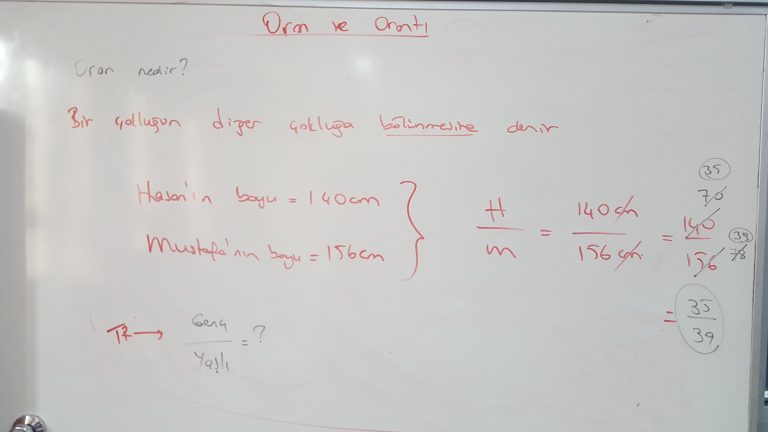 Oran ve Orantı
Oran nedir?
Bir çokluğun diğer çokluğa bölünmesine denir
Hasan'ın boyu = 140cm
Mustafa'nın boyu = 156cm
H/m = 140 cm/156 cm = 140/156
70 35
78 39
= 35/39
→ Genç/Yaşlı = ?